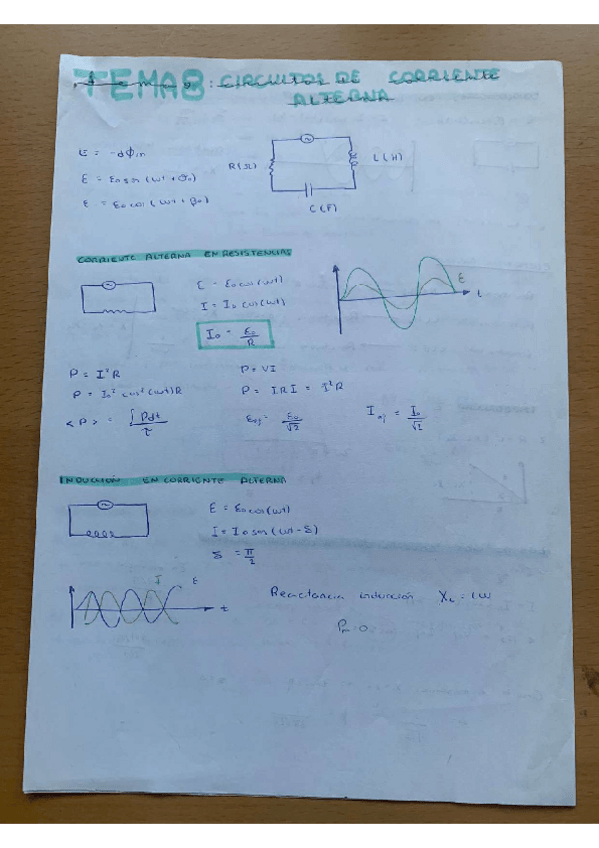 TEMA 8: CIRCUITOS DE CORRIENTE
ALTERNA
E = -dΦm
E = E₀ sen (wt + θ₀)
E = E₀ cos (wt + β₀)
R(Ω)
L(H)
C(F)
CORRIENTE ALTERNA EN RESISTENCIAS
E = E₀ cos (wt)
I = I₀ cos (wt)
I₀ = E₀/R
E
t
P = I²R
P = VI
P = I₀² cos² (wt) R
P = I R I = I²R
<P> = ∫Pdt/τ
Eef = E₀/√2
Ief = I₀/√2
INDUCCIÓN EN CORRIENTE ALTERNA
E = E₀ cos (wt)
I = I₀ sen (wt - δ)
δ = π/2
I
E
t
Reactancia inducción XL = LW